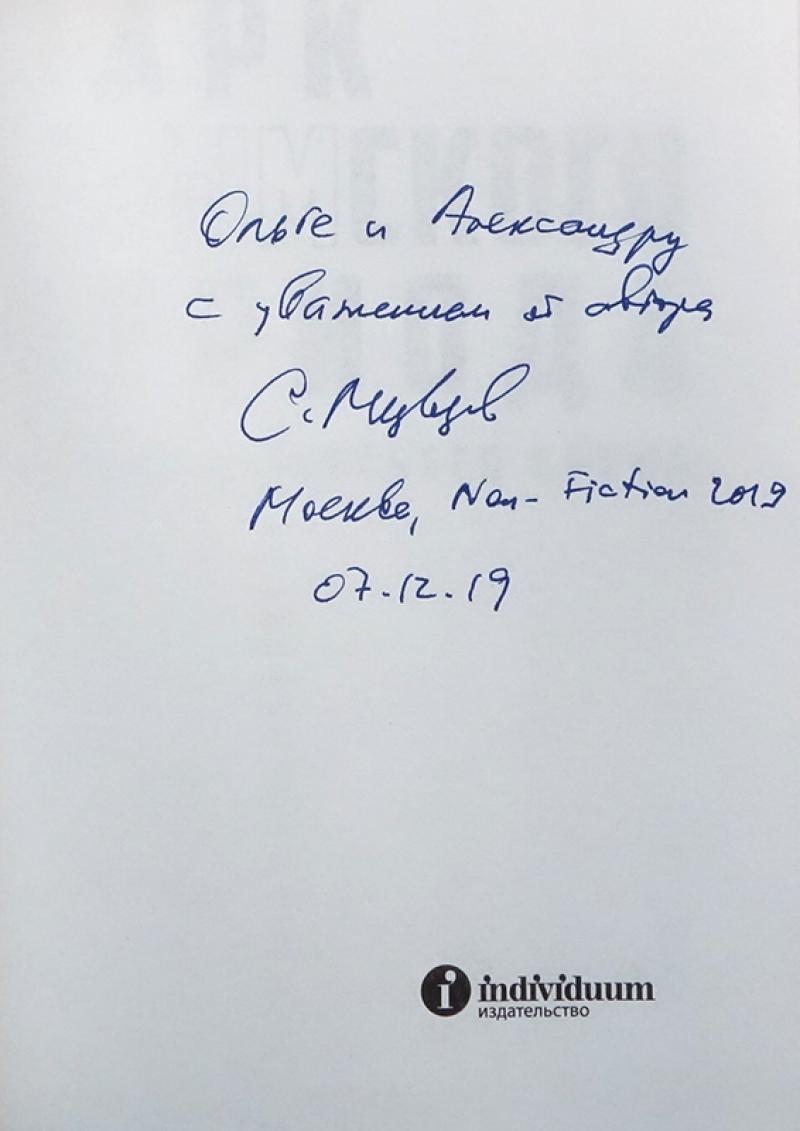 Ольге и Александру
с уважением от автора
С.
Москва, Non-Fiction 2019
07.12.19
individuum
издательство